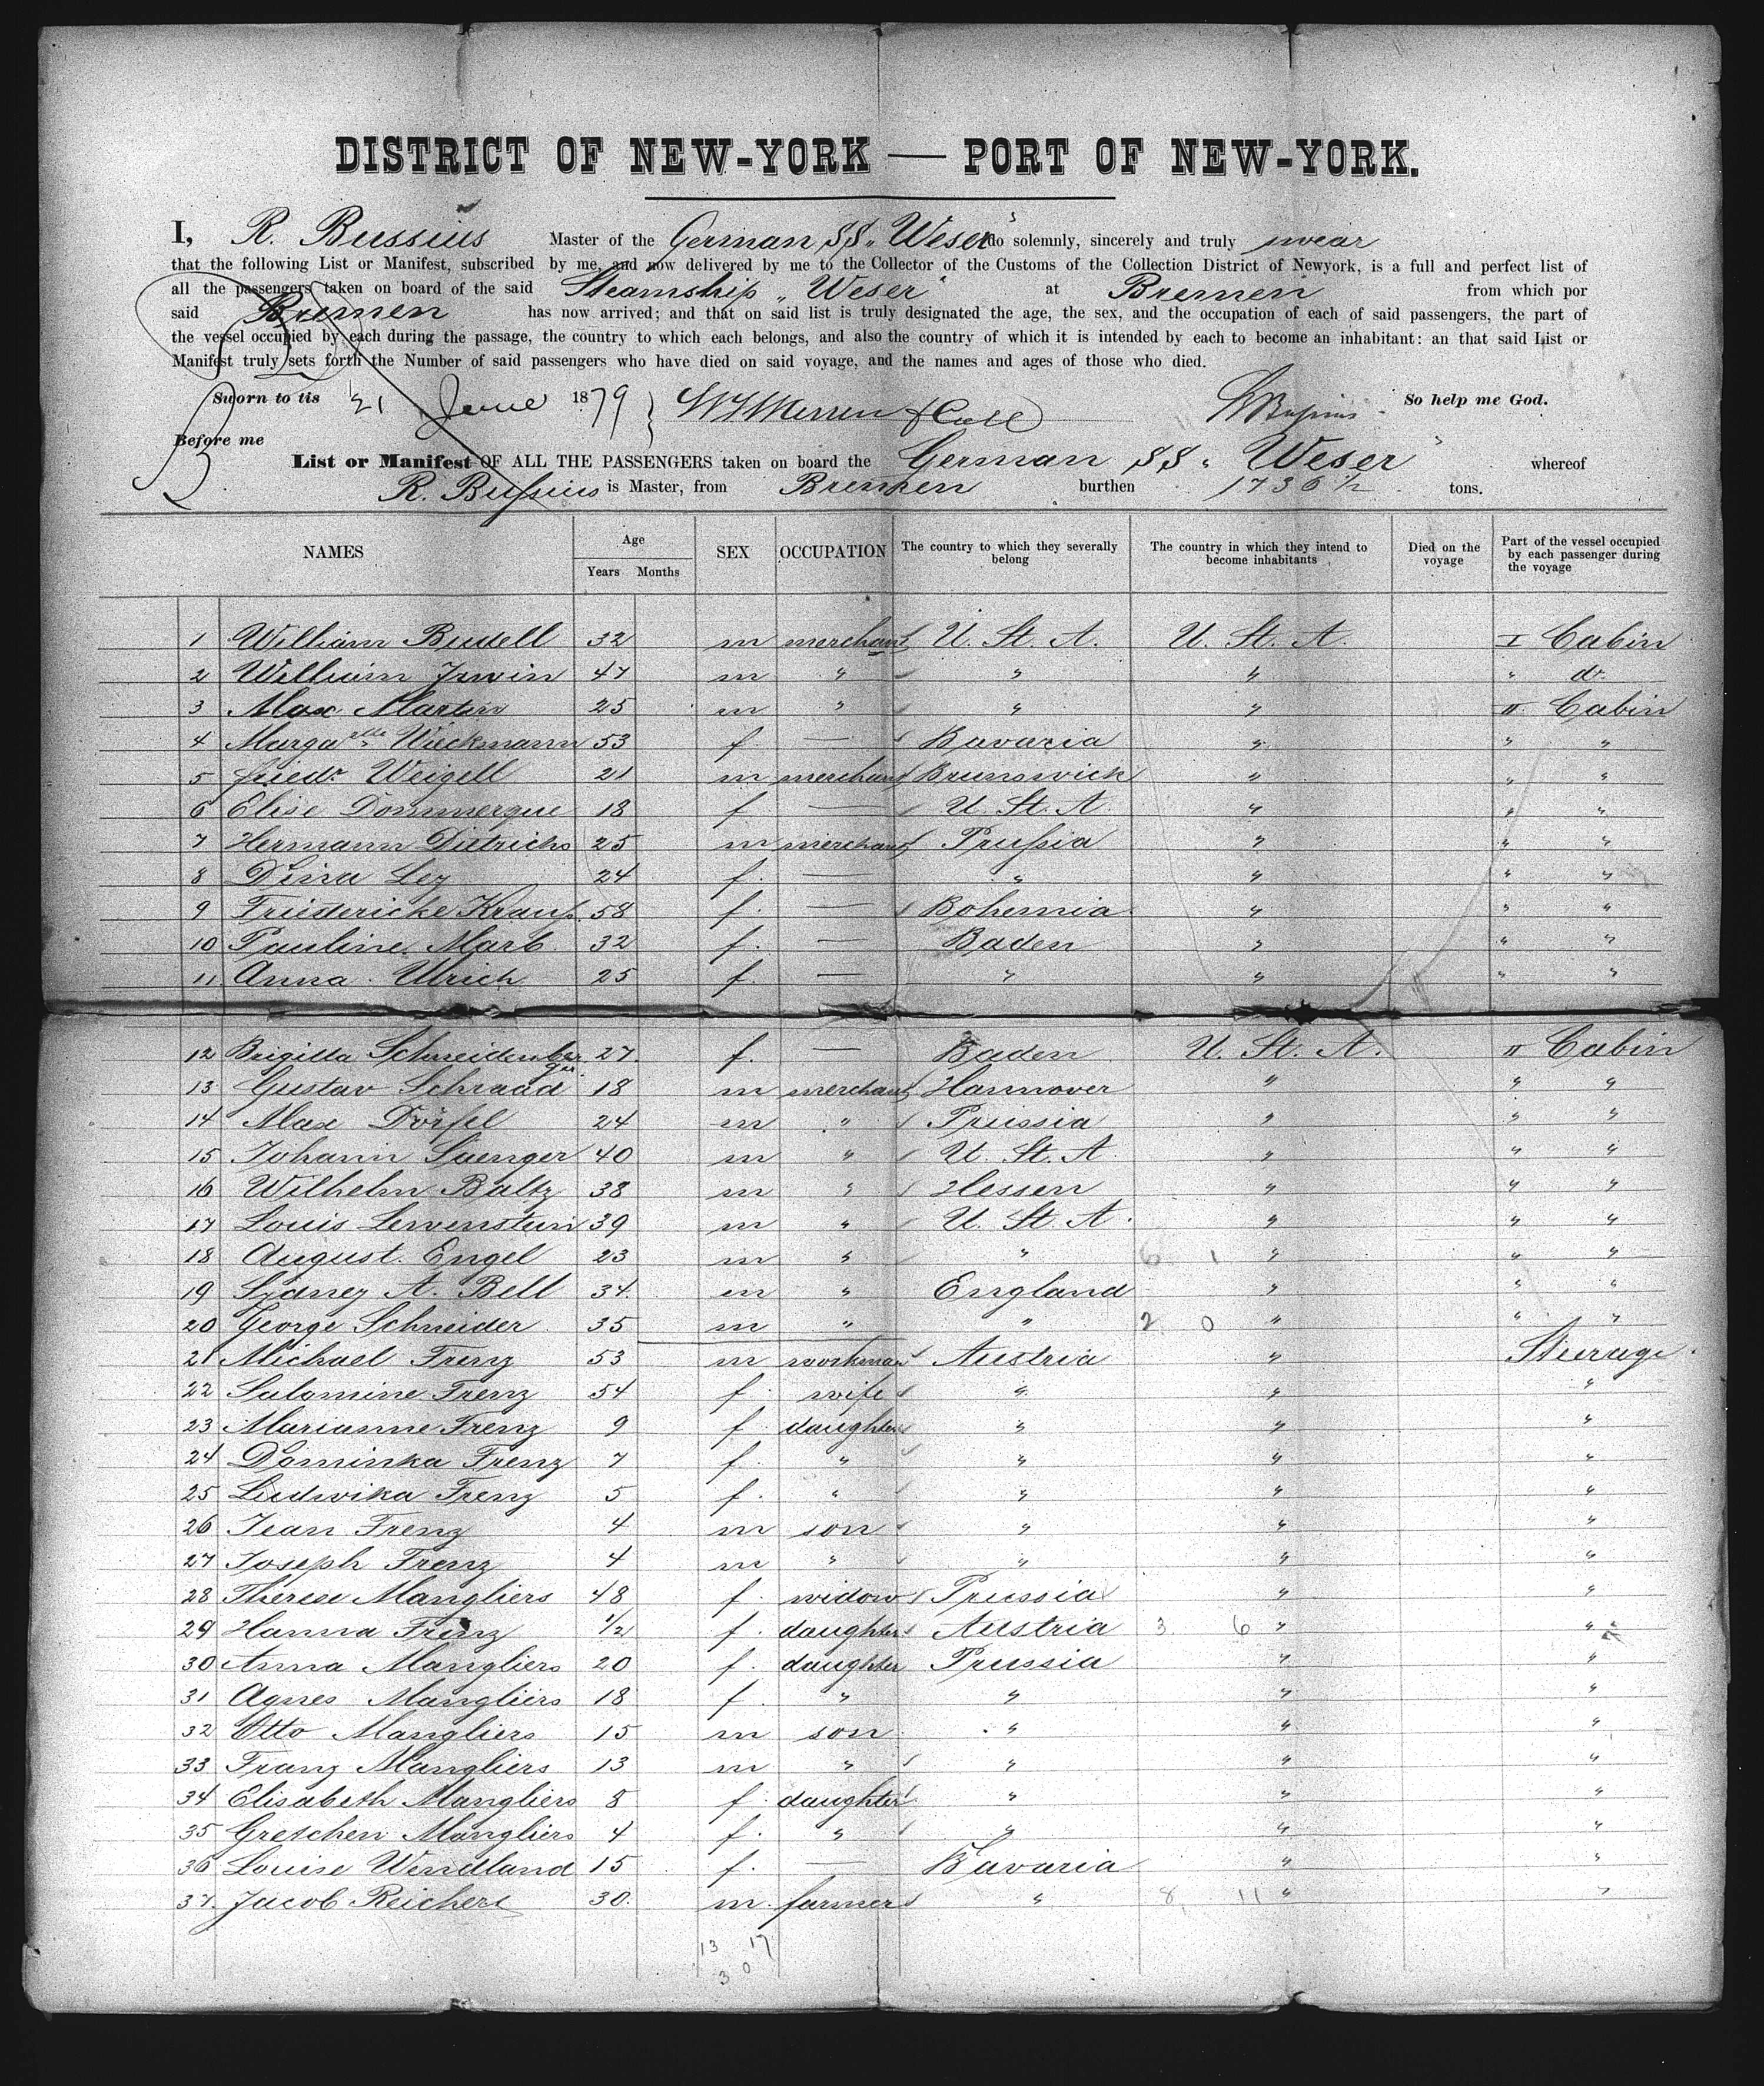 DISTRICT OF NEW-YORK — PORT OF NEW-YORK.
I, R. Bussius Master of the German SS. "Weser" do solemnly, sincerely and truly swear
that the following List or Manifest, subscribed by me, and now delivered by me to the Collector of the Customs of the Collection District of Newyork, is a full and perfect list of
all the passengers taken on board of the said Steamship "Weser" at Bremen from which por
said Bremen has now arrived; and that on said list is truly designated the age, the sex, and the occupation of each of said passengers, the part of
the vessel occupied by each during the passage, the country to which each belongs, and also the country of which it is intended by each to become an inhabitant: an that said List or
Manifest truly sets forth the Number of said passengers who have died on said voyage, and the names and ages of those who died.
Sworn to tis 21 June 1879 } R Bussius So help me God.
Before me
List or Manifest OF ALL THE PASSENGERS taken on board the German SS "Weser" whereof
R. Bussius is Master, from Bremen burthen 1736 1/2 tons.
NAMES Age Years Months SEX OCCUPATION The country to which they severally belong The country in which they intend to become inhabitants Died on the voyage Part of the vessel occupied by each passenger during the voyage
1 William Budell 32 m merchant U. St. A. U. St. A. I Cabin
2 William Irwin 47 m " " " " do
3 Max Martin 25 m " " " II Cabin
4 Margaretha Wieckmann 53 f. — Bavaria " " "
5 Friedr Weigell 21 m merchant Brunswick " " "
6 Elise Dommerque 18 f. — U. St. A. " " "
7 Hermann Dietrichs 25 m merchant Prussia " " "
8 Dina Ley 24 f. — " " " "
9 Friedericke Krauss 58 f. — Bohemia " " "
10 Pauline Marb 32 f. — Baden " " "
11 Anna Ulrich 25 f. — " " " "
12 Brigitta Schneidenber ger 27. f. — Baden U. St. A. II Cabin
13 Gustav Schraad 18 m merchant Hannover " " "
14 Max Dörfel 24 m " Prussia " " "
15 Johann Saenger 40 m " U. St. A. " " "
16 Wilhelm Baltz 38 m " Hessen " " "
17 Louis Lewenstein 39 m " U. St. A. " " "
18 August Engel 23 m " " 6 1 " " "
19 Sydney A. Bell 34. m " England " " "
20 George Schneider 35 m " " 2 0 " " "
21 Michael Frenz 53 m workman Austria " Steerage.
22 Salomine Frenz 54 f. wife " " "
23 Marianne Frenz 9 f. daughter " " "
24 Dominka Frenz 7 f. " " " "
25 Ludwika Frenz 5 f. " " " "
26 Jean Frenz 4 m son " " "
27 Joseph Frenz 4 m " " " "
28 Therese Mangliers 48 f. widow Prussia " "
29 Hanna Frenz 1/2 f. daughter Austria 3 6 " "
30 Anna Mangliers 20 f. daughter Prussia " "
31 Agnes Mangliers 18 f. " " " "
32 Otto Mangliers 15 m son " " "
33 Franz Mangliers 13 m " " " "
34 Elisabeth Mangliers 8 f. daughter " " "
35 Gretchen Mangliers 4 f. " " " "
36 Louise Wendland 15 f. — Bavaria " "
37. Jacob Reichert 30. m. farmer " 8 11 " "
13 17
30